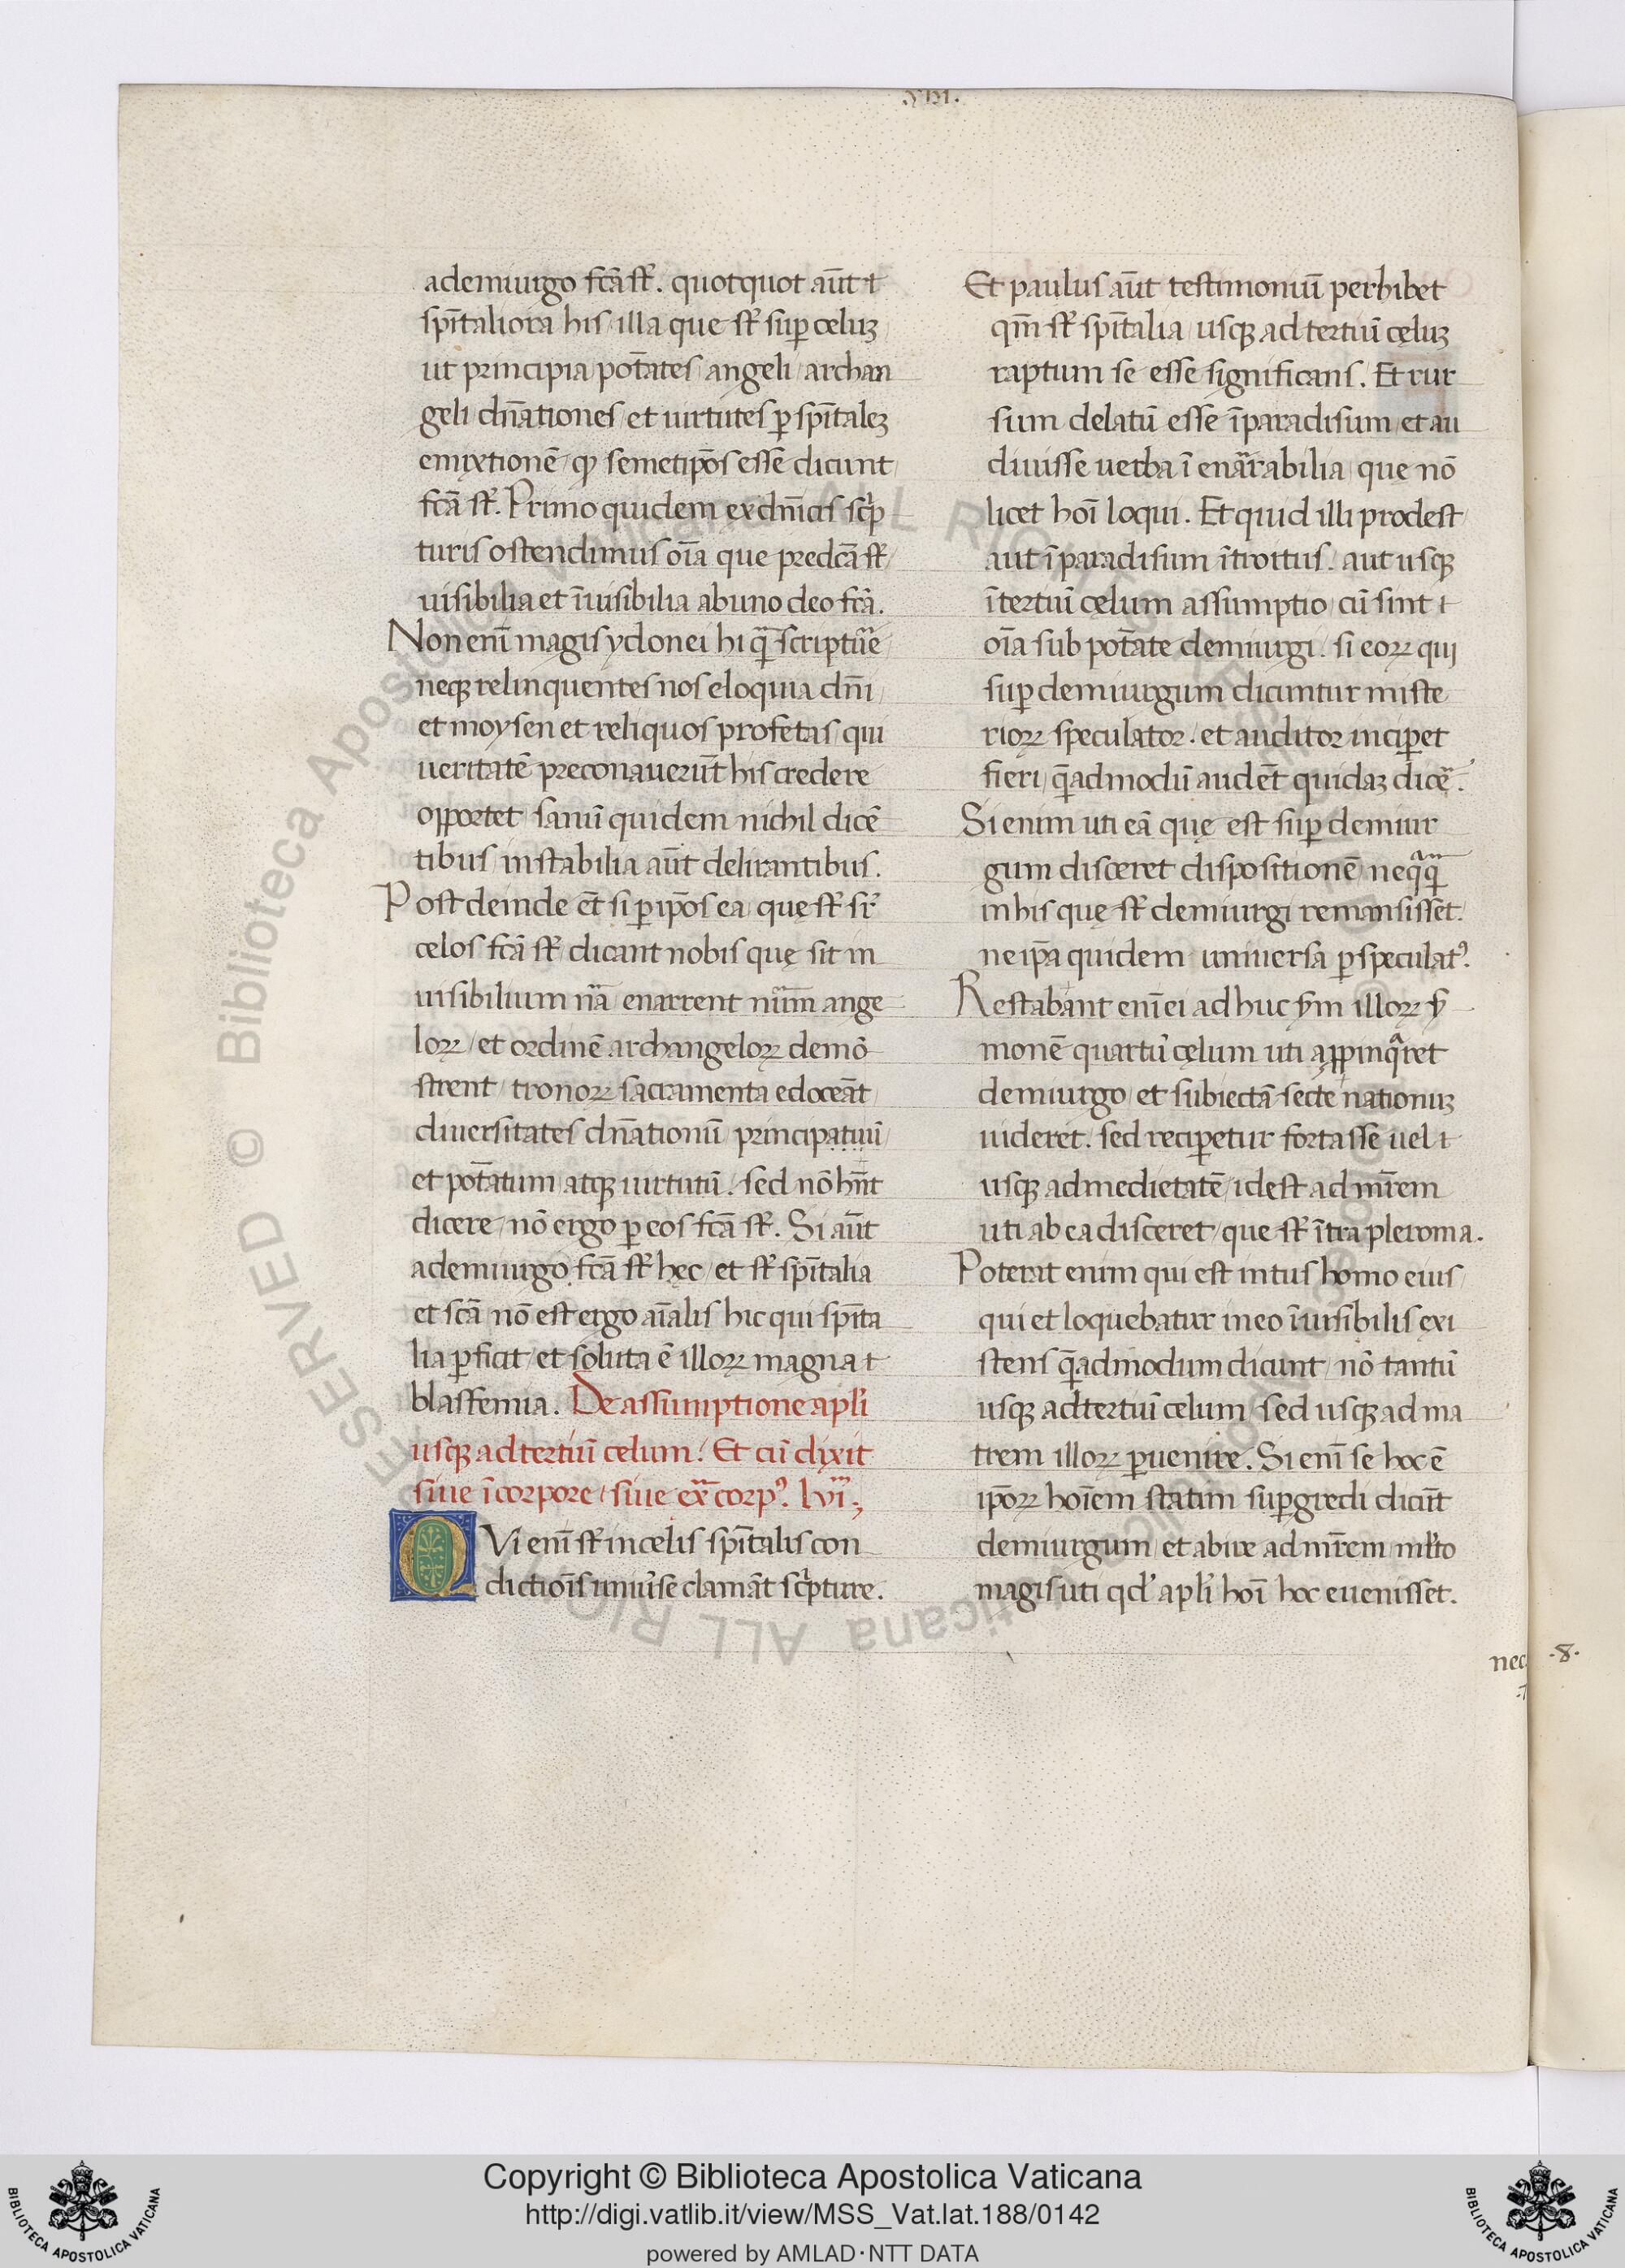 .VIII.
ademiurgo fcā sт̄. quotquot aūt t
spīrtaliora his/illa que sт̄ sup celuʒ
ut principia/potātes/angeli/archan
geli dn̄ationes et uirtutes p spīrtaleʒ
emixtionē/qꝫ semetip̄os esse dicunt
fcā sт̄. Primo quidem ex dn̄icis scp̄
turis ostendimus oīa que predcā sт̄/
uisibilia et īuisibilia ab uno deo fcā.
Non enī magis ydonei hi qᷓ scriptur̄e
neqꝫ relinquentes nos eloquia dn̄i
et moysen et reliquos profetas/qui
ueritatē preconauerūt his credere
opportet/sanū quidem nichil dicē
tibus/instabilia aūt delirantibus.
Post deinde et̄ si p ip̄os ea quę sт̄ sr̄
celos fcā sт̄/dicant nobis quę sit in
uisibilium nr̄a enarrent nūm ange
loꝝ/et ordinē archangeloꝝ demō
strent/tronoꝝ sacramenta edoceāt
diuersitates dn̄ationū/principatuū
et potātum/atqꝫ uirtutū. sed nō hn̄t
dicere/nō ergo p eos fcā sт̄. Si aūt
ademiurgo fcā sт̄ hęc/et sт̄ spīrtalia
et scā nō est ergo aīalis hic qui spīrta
lia pficit/et soluta ē illoꝝ magna t
blasfemia. De assumptione apl̄i
usqꝫ ad tertiū celum. Et cū dixit
siue ī corpore/siue exᷓ corpꝰ. lvī;
QVi enī sт̄ in celis spīrtalis con
dictiōis uniūse clamāt scp̄ture.
Et paulus aūt testimoniuī perhibet
qm̄ sт̄ spīrtalia/usqꝫ ad tertiū cęluʒ
raptum se esse significans. Et rur
sum delatū esse ī paradisum/et au
diuisse uerba ī enarrabilia/que nō
licet hoī loqui. Et quid illi prodest
aut ī paradisum ītroitus. aut usqꝫ
ī tertiū cęlum assumptio/cū sint t
oīa sub potāte demiurgi. si eoꝝ qui
sup demiurgum dicuntur miste
rioꝝ speculator. et auditor inciperet
fieri/qᷓadmodū audēt quidaʒ dicē.
Si enim uti eā quę est sup demiur
gum disceret dispositionē/neqᷓqᷓ
in his quę sт̄ demiurgi remansisset.
ne ip̄a quidem uniuersa pspeculatꝰ.
Restabant enī ei ad huc ẏm illoꝝ ẏ
monē quartū cęlum uti appinqᷓret
demiurgo/et subiectā secte nationuʒ
uideret. sed reciperetur fortasse uel t
usqꝫ ad medietatē/idest ad mr̄em
uti ab ea disceret/que sт̄ ītra pleroma.
Poterat enim qui est intus homo eius/
qui et loquebatur in eo īuisibilis exi
stens qᷓadmodum dicunt/nō tantū
usqꝫ ad tertiū celum/sed usqꝫ ad ma
trem illoꝝ puenire. Si enī se hoc ē
ip̄oꝝ hoīem statim supgredi dicūt
demiurgum/et abire ad mr̄em/ml̄to
magis uti qd̓ apl̄i hoī hoc euenisset.
nec
.8.
Copyright © Biblioteca Apostolica Vaticana
http://digi.vatlib.it/view/MSS_Vat.lat.188/0142
powered by AMLAD·NTT DATA
BIBLIOTECA APOSTOLICA VATICANA
BIBLIOTECA APOSTOLICA VATICANA